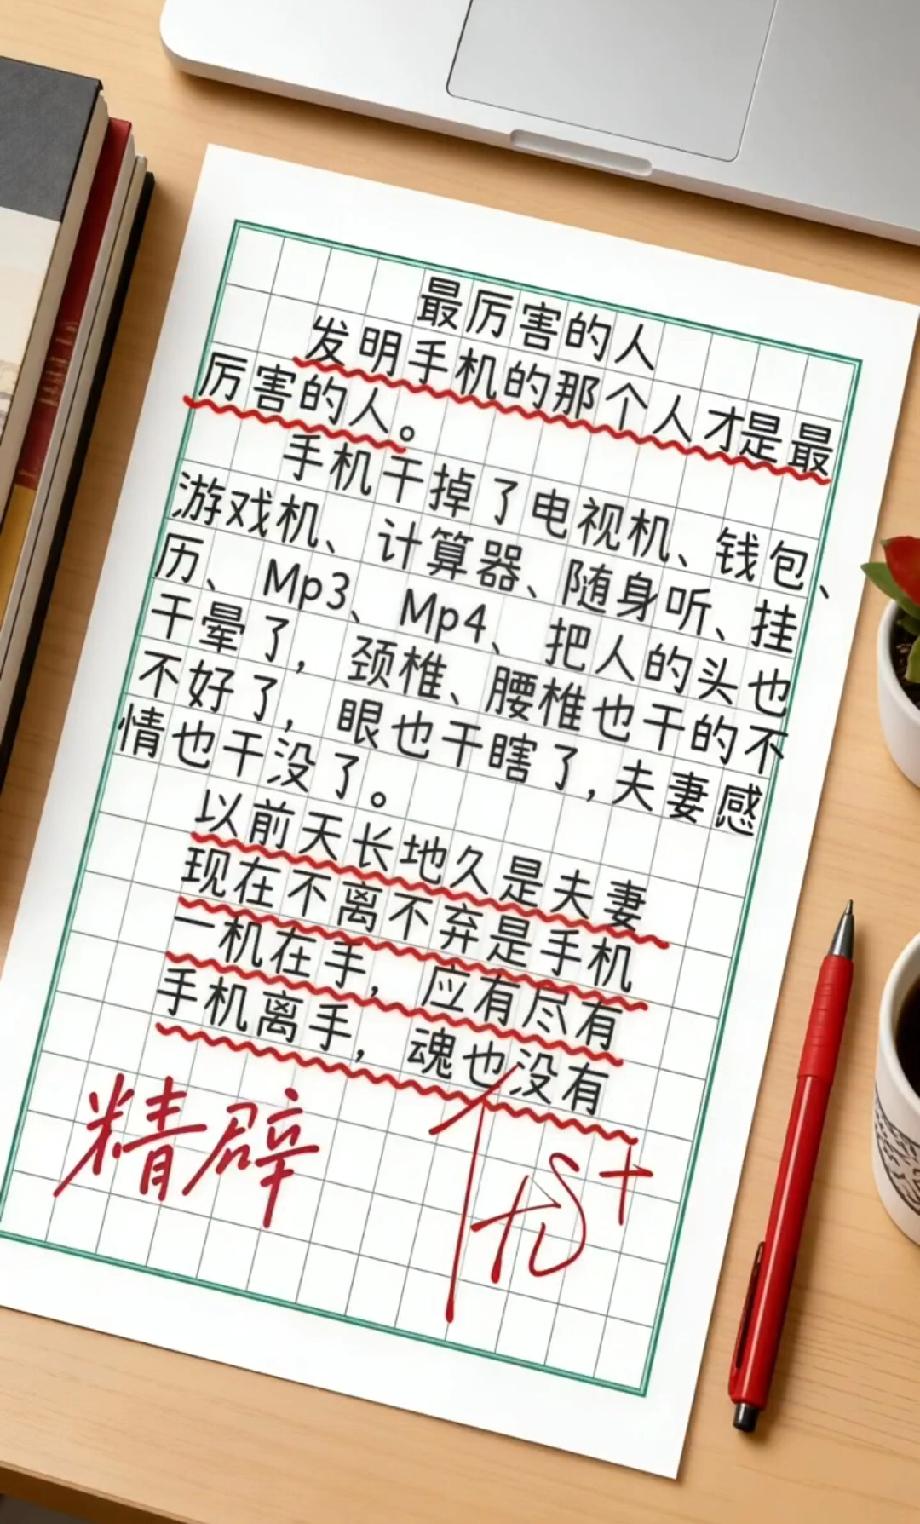 最厉害的人
发明手机的那个人才是最
厉害的人。
手机干掉了电视机、钱包、
游戏机、计算器、随身听、挂
历、Mp3、Mp4、把人的头也
干晕了，颈椎、腰椎也干的不
不好了，眼也干瞎了,夫妻感
情也干没了。
以前天长地久是夫妻
现在不离不弃是手机
一机在手，应有尽有
手机离手，魂也没有
精辟
优+